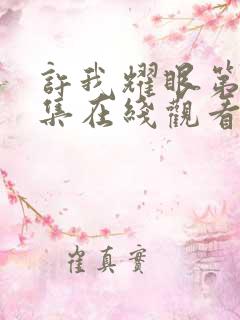 許我耀眼第
集在綫觀看
崔真實